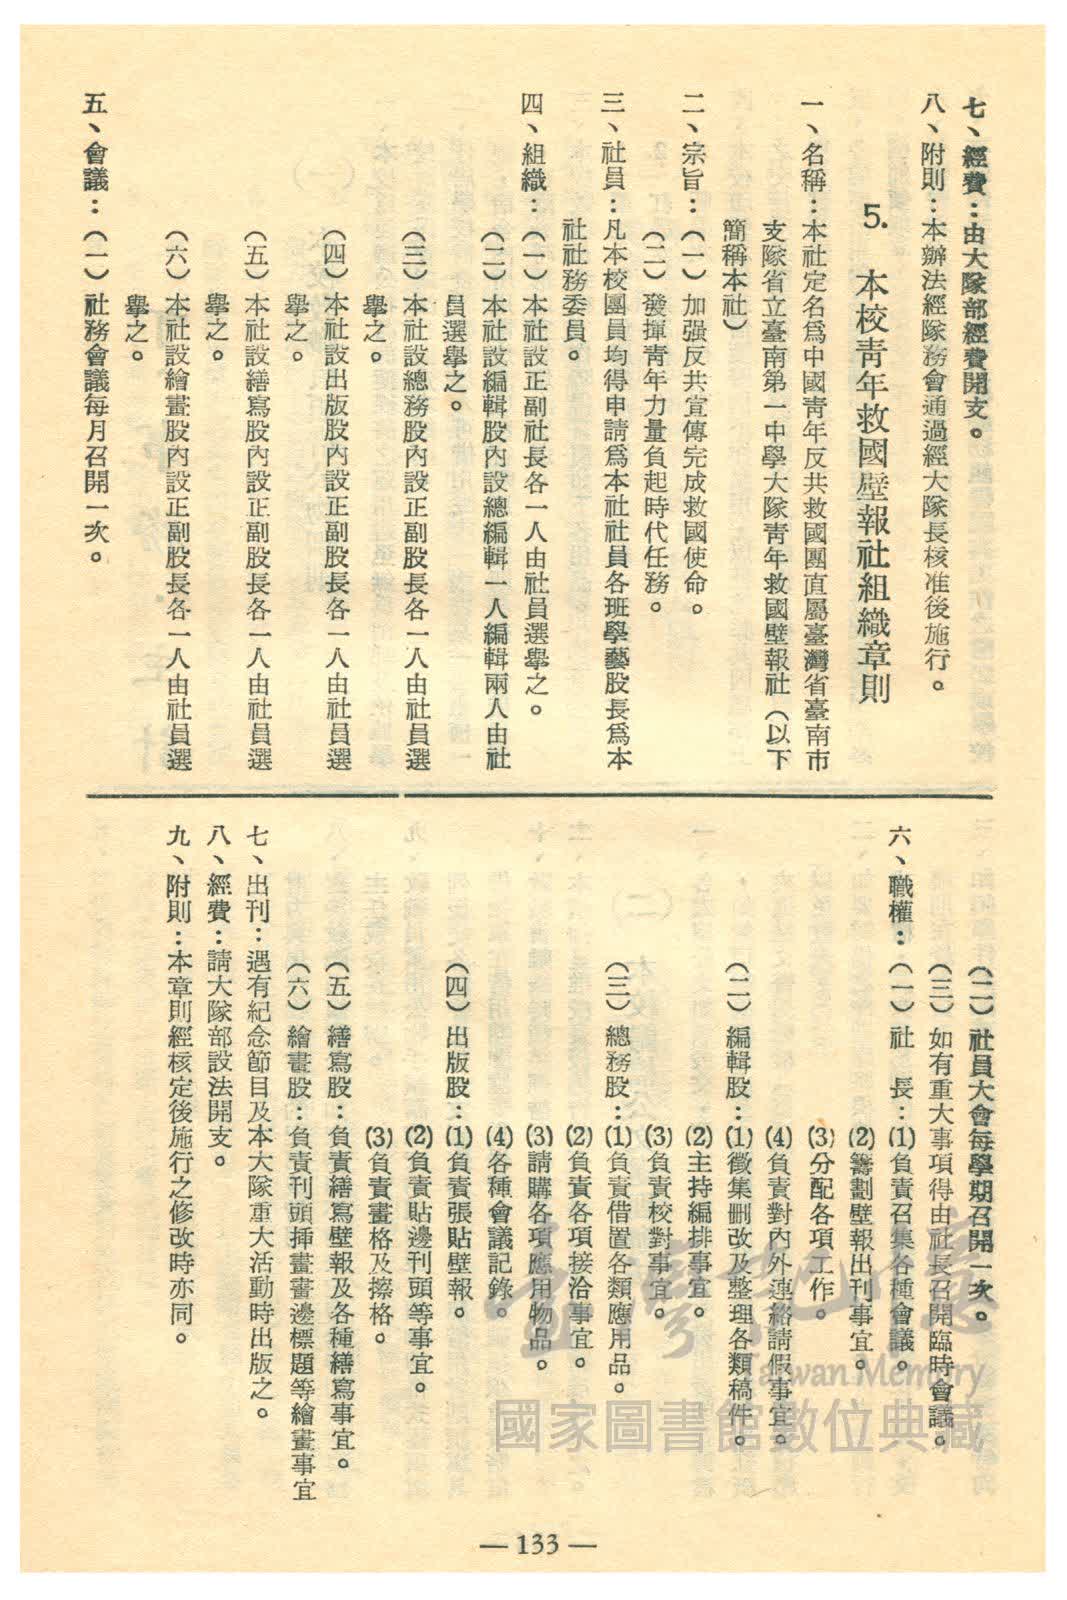 七、經費：由大隊部經費開支。
八、附則：本辦法經隊務會通過經大隊長核准後施行。
5. 本校青年救國壁報社組織章則
一、名稱：本社定名爲中國靑年反共救國團直屬臺灣省臺南市
支隊省立臺南第一中學大隊靑年救國壁報社（以下
簡稱本社）
二、宗旨：（一）加强反共宣傳完成救國使命。
（二）發揮靑年力量負起時代任務。
三、社員：凡本校團員均得申請爲本社社員各班學藝股長爲本
社社務委員。
四、組織：（一）本社設正副社長各一人由社員選舉之。
（二）本社設編輯股內設總編輯一人編輯兩人由社
員選舉之。
（三）本社設總務股內設正副股長各一人由社員選
舉之。
（四）本社設出版股內設正副股長各一人由社員選
舉之。
（五）本社設繕寫股內設正副股長各一人由社員選
舉之。
（六）本社設繪畫股內設正副股長各一人由社員選
舉之。
五、會議：（一）社務會議每月召開一次。
（二）社員大會每學期召開一次。
（三）如有重大事項得由社長召開臨時會議。
六、職權：（一）社　長：(1)負責召集各種會議。
(2)籌劃壁報出刊事宜。
(3)分配各項工作。
(4)負責對內外連絡請假事宜。
（二）編輯股：(1)徵集刪改及整理各類稿件。
(2)主持編排事宜。
(3)負責校對事宜。
（三）總務股：(1)負責借置各類應用品。
(2)負責各項接洽事宜。
(3)請購各項應用物品。
(4)各種會議記錄。
（四）出版股：(1)負責張貼壁報。
(2)負責貼邊刊頭等事宜。
(3)負責畫格及擦格。
（五）繕寫股：負責繕寫壁報及各種繕寫事宜。
（六）繪畫股：負責刊頭揷畫畫邊標題等繪畫事宜
七、出刊：遇有紀念節目及本大隊重大活動時出版之。
八、經費：請大隊部設法開支。
九、附則：本章則經核定後施行之修改時亦同。
臺灣記憶
Taiwan Memory
國家圖書館數位典藏
— 133 —